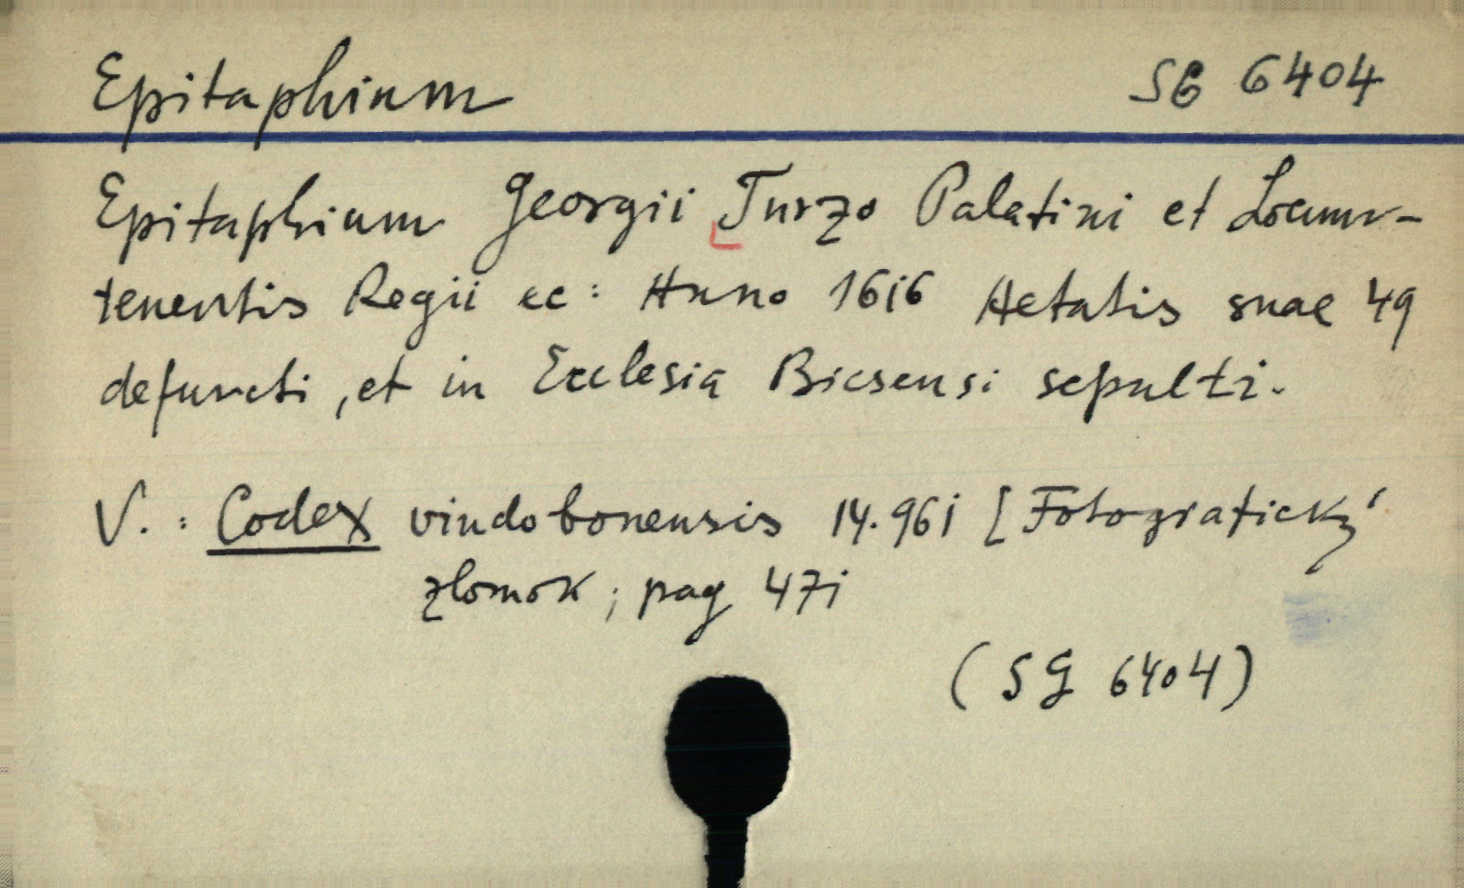 Epitaphium SG 6404
Epitaphium Georgii Turzo Palatini et Locum-
tenentis Regii ec: Anno 1616 Aetatis suae 49
defuncti, et in Ecclesia Bicsensi sepulti.
V.: Codex vindobonensis 14.961 [Fotografický
zlomok; pag 471
(SG 6404)